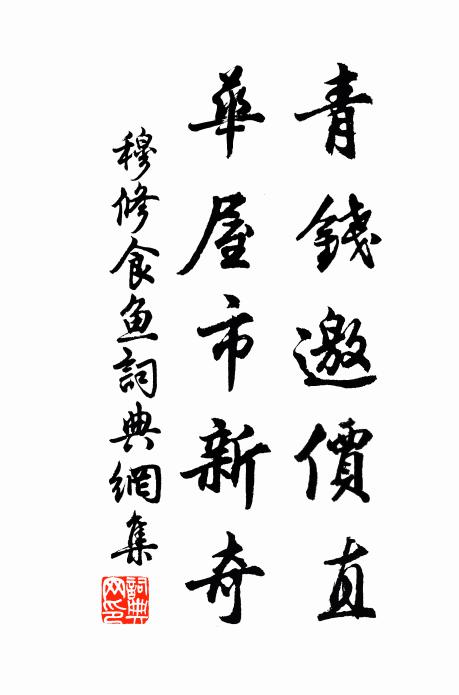 青錢邀價直
華屋市新奇
穆修食魚詞典網集
詞典網印